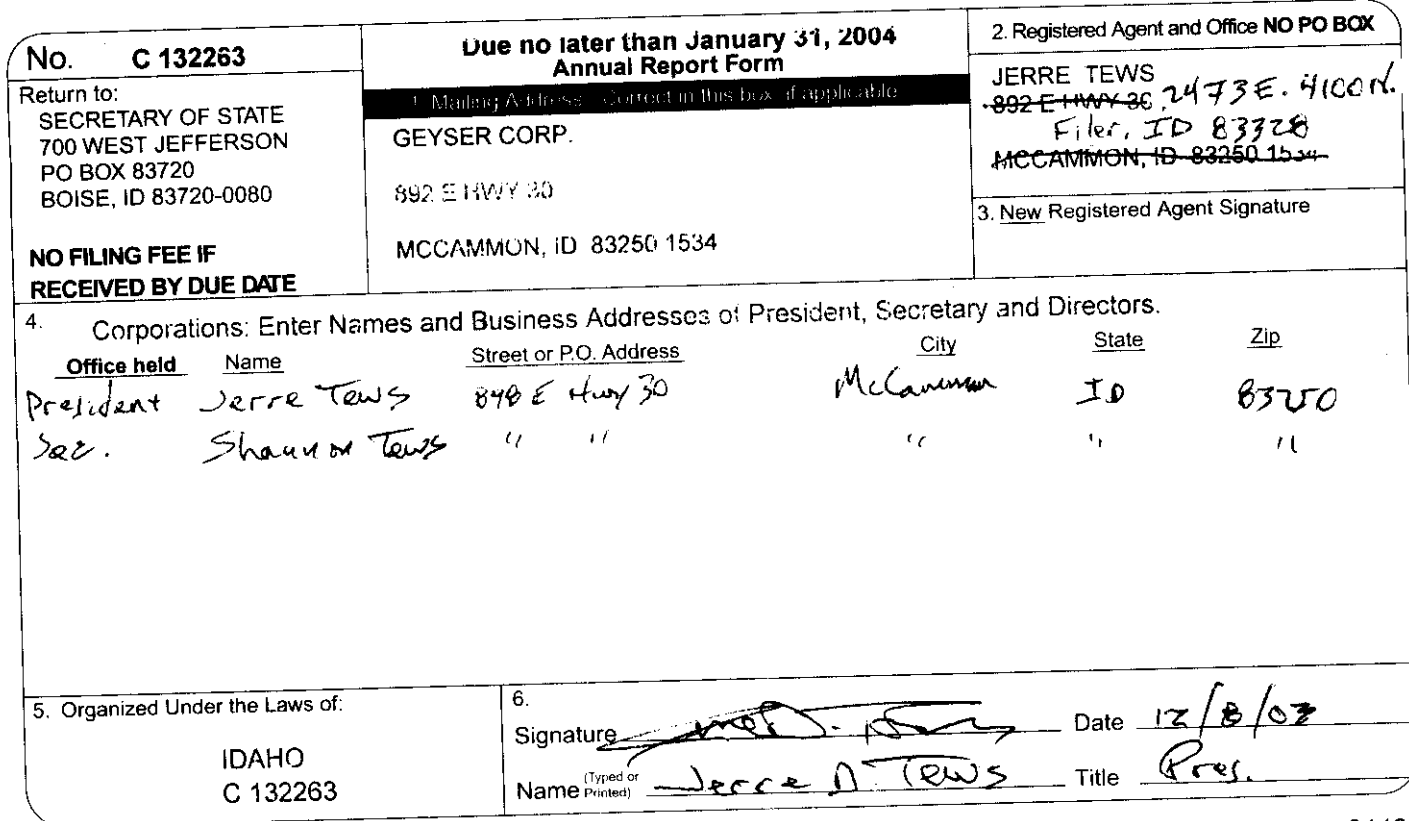 No. C 132263
Return to:
SECRETARY OF STATE
700 WEST JEFFERSON
PO BOX 83720
BOISE, ID 83720-0080
NO FILING FEE IF
RECEIVED BY DUE DATE
Due no later than January 31, 2004
Annual Report Form
1. Mailing Address: Correct in this box if applicable
GEYSER CORP.
892 E HWY 30
MCCAMMON, ID 83250 1534
2. Registered Agent and Office NO PO BOX
JERRE TEWS
892 E HWY 30 2473 E. 4100 N.
Filer, ID 83328
MCCAMMON, ID 83250 1534
3. New Registered Agent Signature
4. Corporations: Enter Names and Business Addresses of President, Secretary and Directors.
Office held Name Street or P.O. Address City State Zip
President Jerre Tews 848 E Hwy 30 McCammon ID 83250
Sec. Shannon Tews " " " " "
5. Organized Under the Laws of:
IDAHO
C 132263
6.
Signature Date 12/8/03
Name (Typed or Printed) Jerre D. Tews Title Pres.